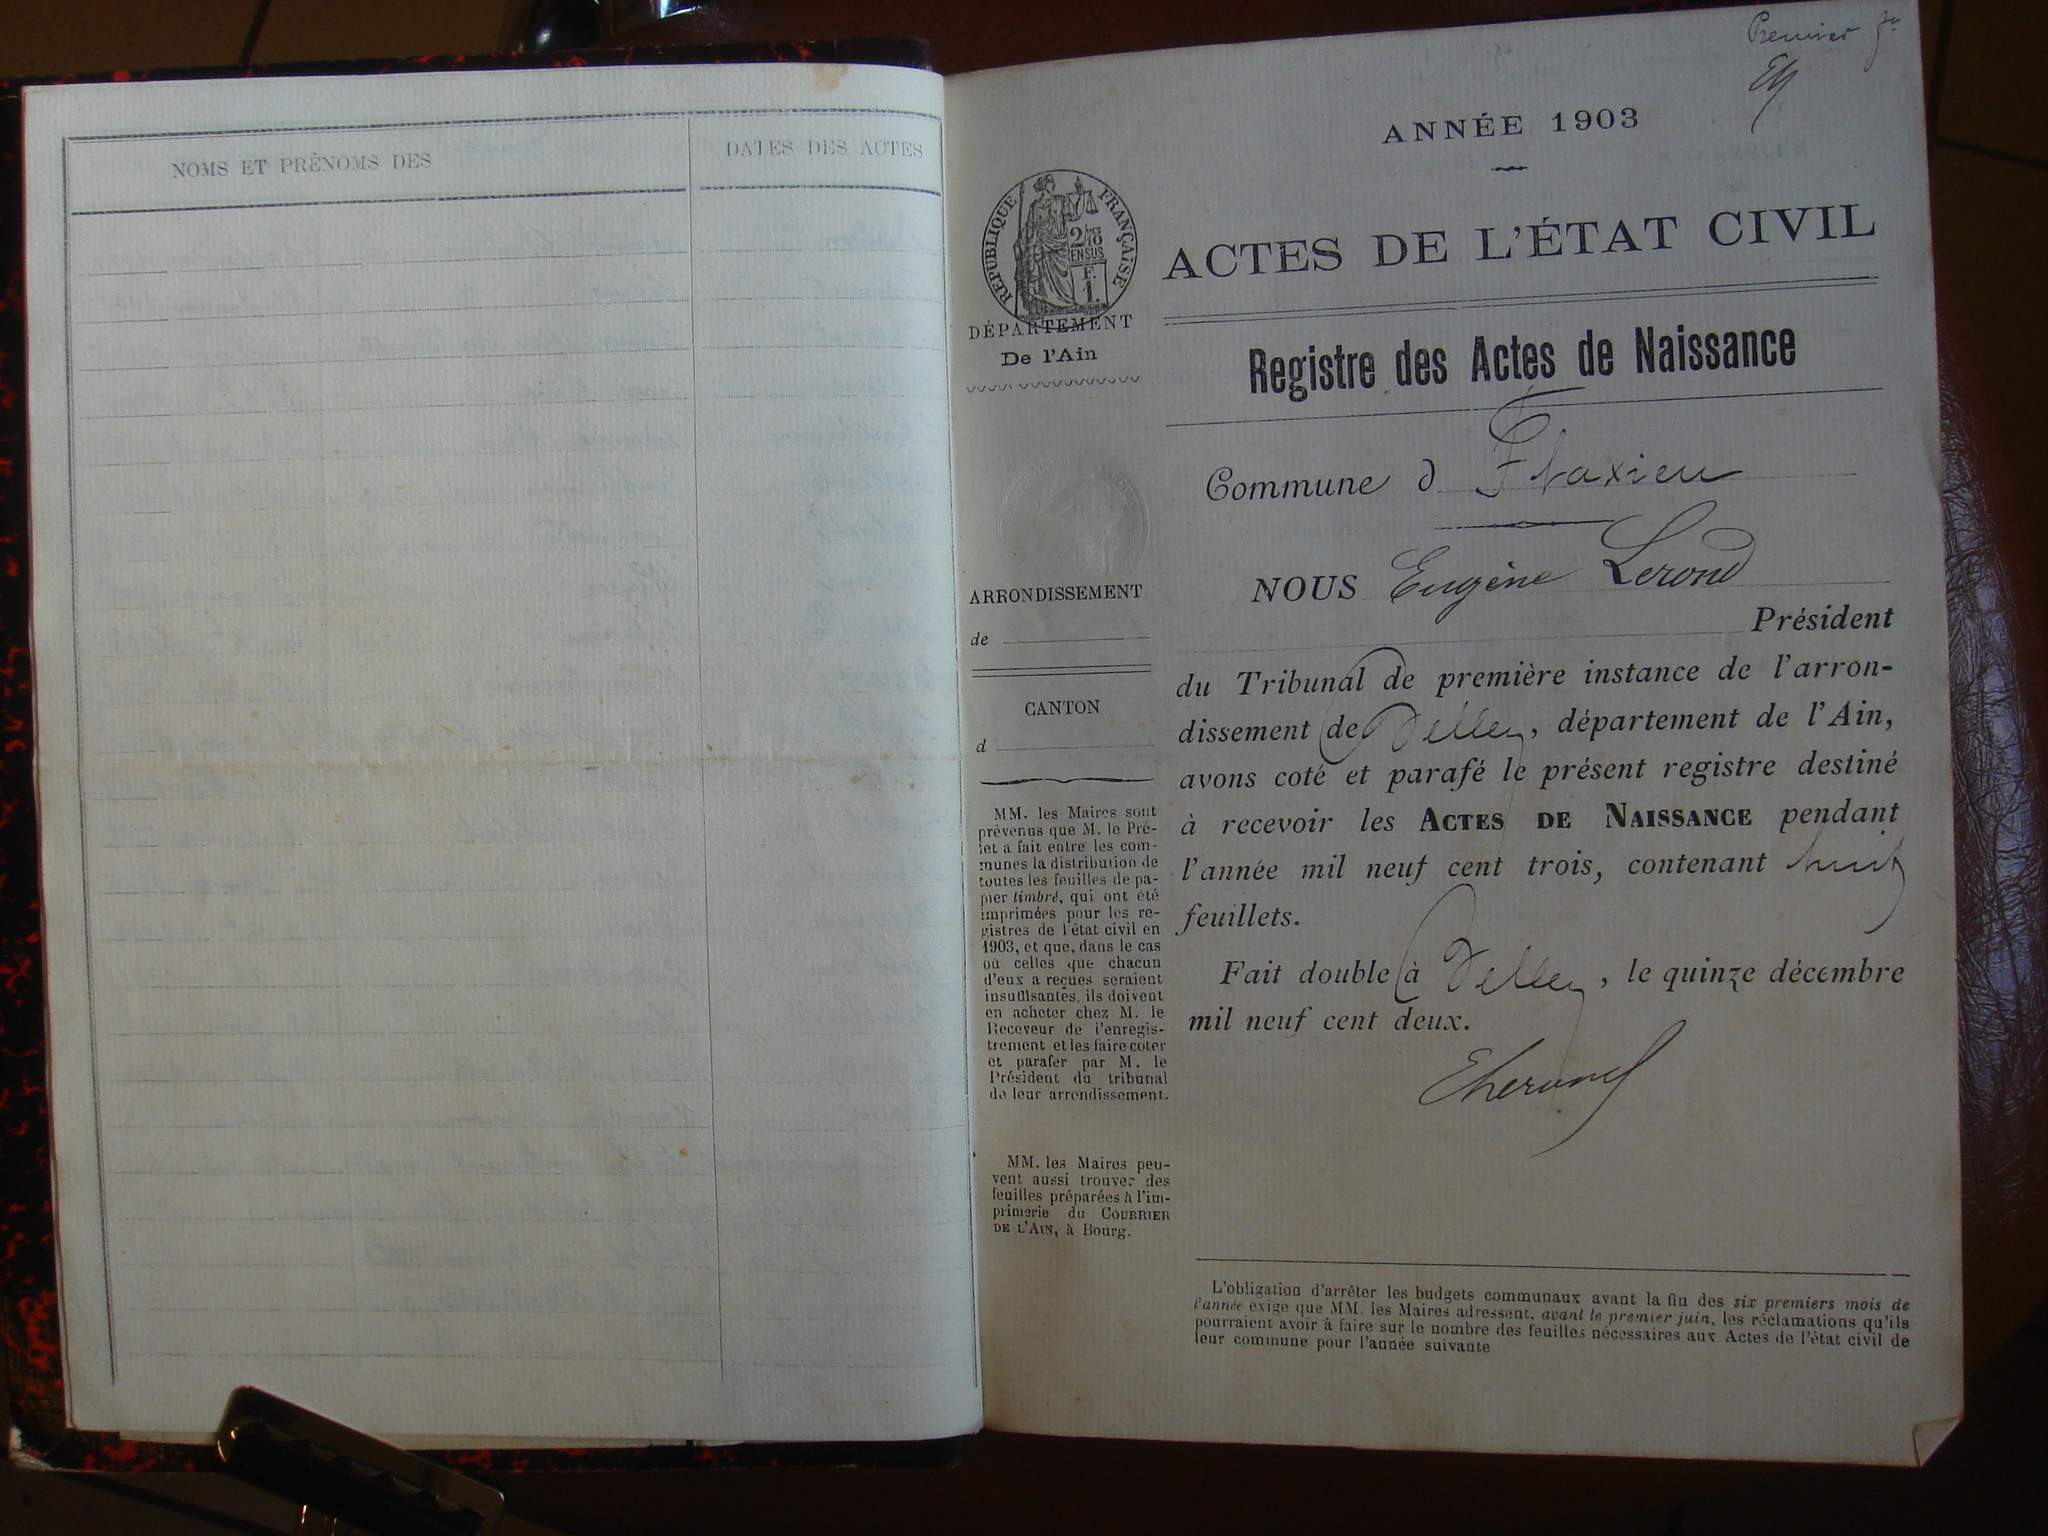 NOMS ET PRÉNOMS DES
DATES DES ACTES
Premier
ANNÉE 1903
ACTES DE L'ÉTAT CIVIL
RÉPUBLIQUE FRANÇAISE
2/10
EN SUS
F.
1.
DÉPARTEMENT
De l'Ain
Registre des Actes de Naissance
Commune d Flaxieu
ARRONDISSEMENT
de
CANTON
d
NOUS Eugène Lerond
Président
du Tribunal de première instance de l'arron-
dissement de Belley, département de l'Ain,
avons coté et parafé le présent registre destiné
à recevoir les ACTES DE NAISSANCE pendant
l'année mil neuf cent trois, contenant huit
feuillets.
Fait double à Belley, le quinze décembre
mil neuf cent deux.
ELerond
MM. les Maires sont
prévenus que M. le Pré-
fet a fait entre les com-
munes la distribution de
toutes les feuilles de pa-
pier timbré, qui ont été
imprimées pour les re-
gistres de l'état civil en
1903, et que, dans le cas
où celles que chacun
d'eux a reçues seraient
insuffisantes, ils doivent
en acheter chez M. le
Receveur de l'enregis-
trement et les faire coter
et parafer par M. le
Président du tribunal
de leur arrondissement.
MM. les Maires peu-
vent aussi trouver des
feuilles préparées à l'im-
primerie du COURRIER
DE L'AIN, à Bourg.
L'obligation d'arrêter les budgets communaux avant la fin des six premiers mois de
l'année exige que MM. les Maires adressent, avant le premier juin, les réclamations qu'ils
pourraient avoir à faire sur le nombre des feuilles nécessaires aux Actes de l'état civil de
leur commune pour l'année suivante